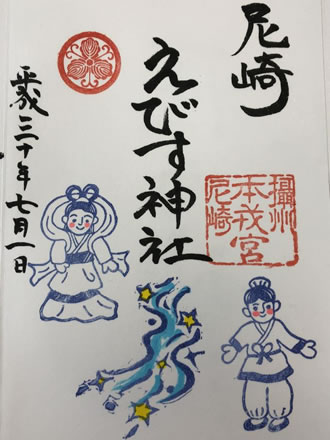 尼崎
えびす神社
平成三十年七月一日
攝州
本戎宮
尼崎